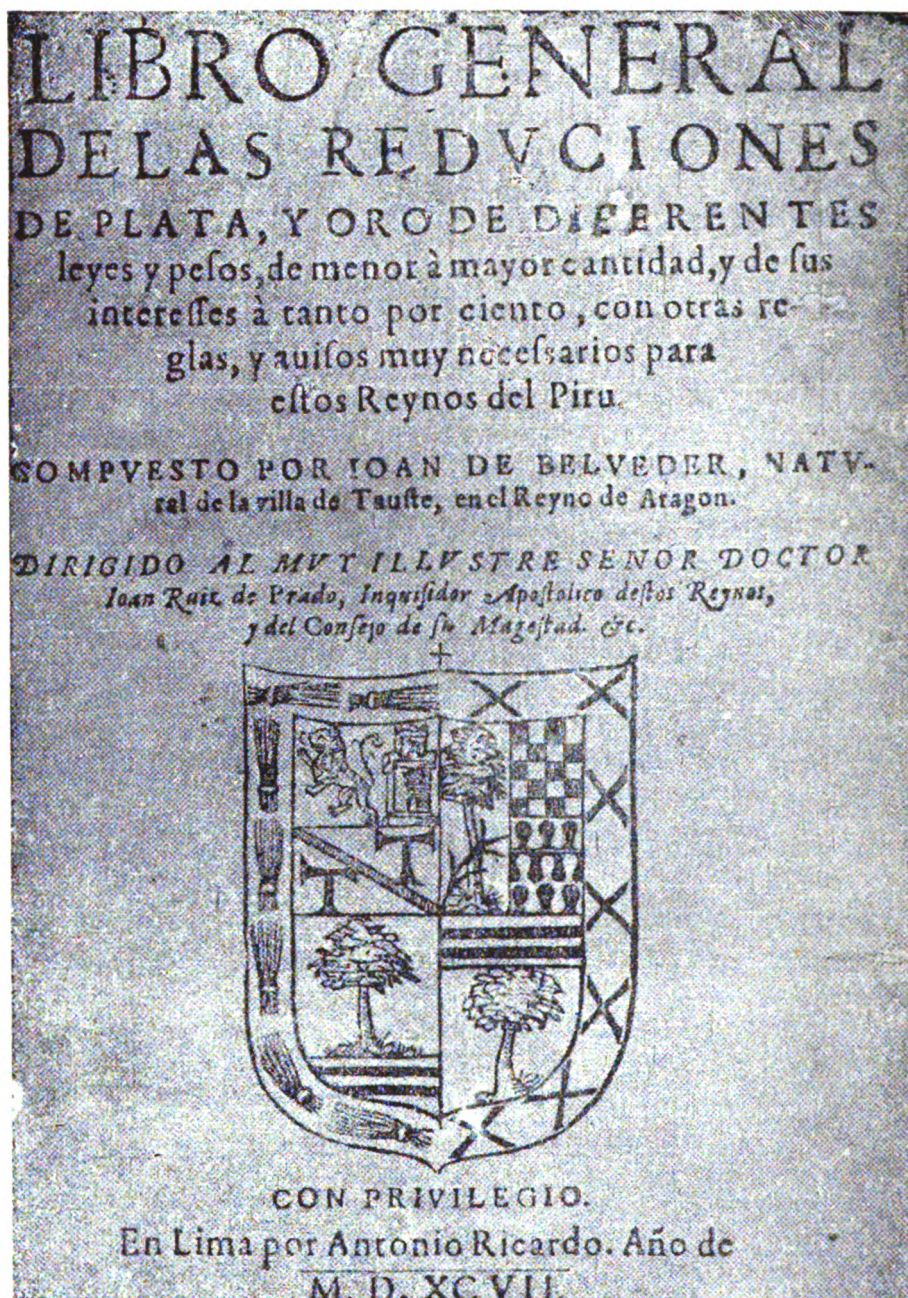 LIBRO GENERAL
DELAS REDVCIONES
DE PLATA, Y ORO DE DIFERENTES
leyes y peſos, de menor à mayor cantidad, y de ſus
intereſſes à tanto por ciento, con otras re-
glas, y auiſos muy neceſsarios para
eſtos Reynos del Piru.
COMPVESTO POR IOAN DE BELVEDER, NATV-
ral de la villa de Tauſte, en el Reyno de Aragon.
DIRIGIDO AL MVY ILLVSTRE SENOR DOCTOR
Ioan Ruiz de Prado, Inquiſidor Apoſtolico deſtos Reynos,
y del Conſejo de ſu Mageſtad. &c.
CON PRIVILEGIO.
En Lima por Antonio Ricardo. Año de
M. D. XCVII.